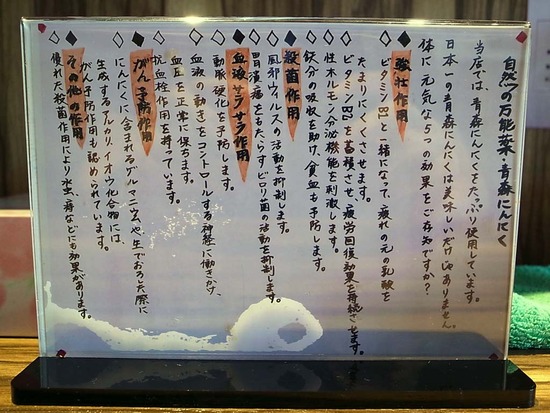 自然の万能薬・青森にんにく
当店では、青森にんにくをたっぷり使用しています。
日本一の青森にんにくは美味しいだけじゃありません。
体に元気な5つの効果をご存知ですか?
◆強壮作用
◇ビタミンB1と一緒になって、疲れの元の乳酸を
たまりにくくさせます。
◇ビタミンB1を蓄積させ、疲労回復効果を持続させます。
◇性ホルモン分泌機能を刺激します。
◇鉄分の吸収を助け、貧血も予防します。
◆殺菌作用
◇風邪ウィルスの活動を抑制します。
◇胃潰瘍をもたらすピロリ菌の活動を抑制します。
◆血液サラサラ作用
◇動脈硬化を予防します。
◇血液の動きをコントロールする神経に働きかけ、
血圧を正常に保ちます。
◇抗血栓作用を持っています。
◆がん予防作用
◇にんにくに含まれるゲルマニウムや生でおろした際に
生成するアルカリ、イオウ化合物には、
がん予防作用も認められています。
◆その他の作用
◇優れた殺菌作用により水虫、痔などにも効果があります。